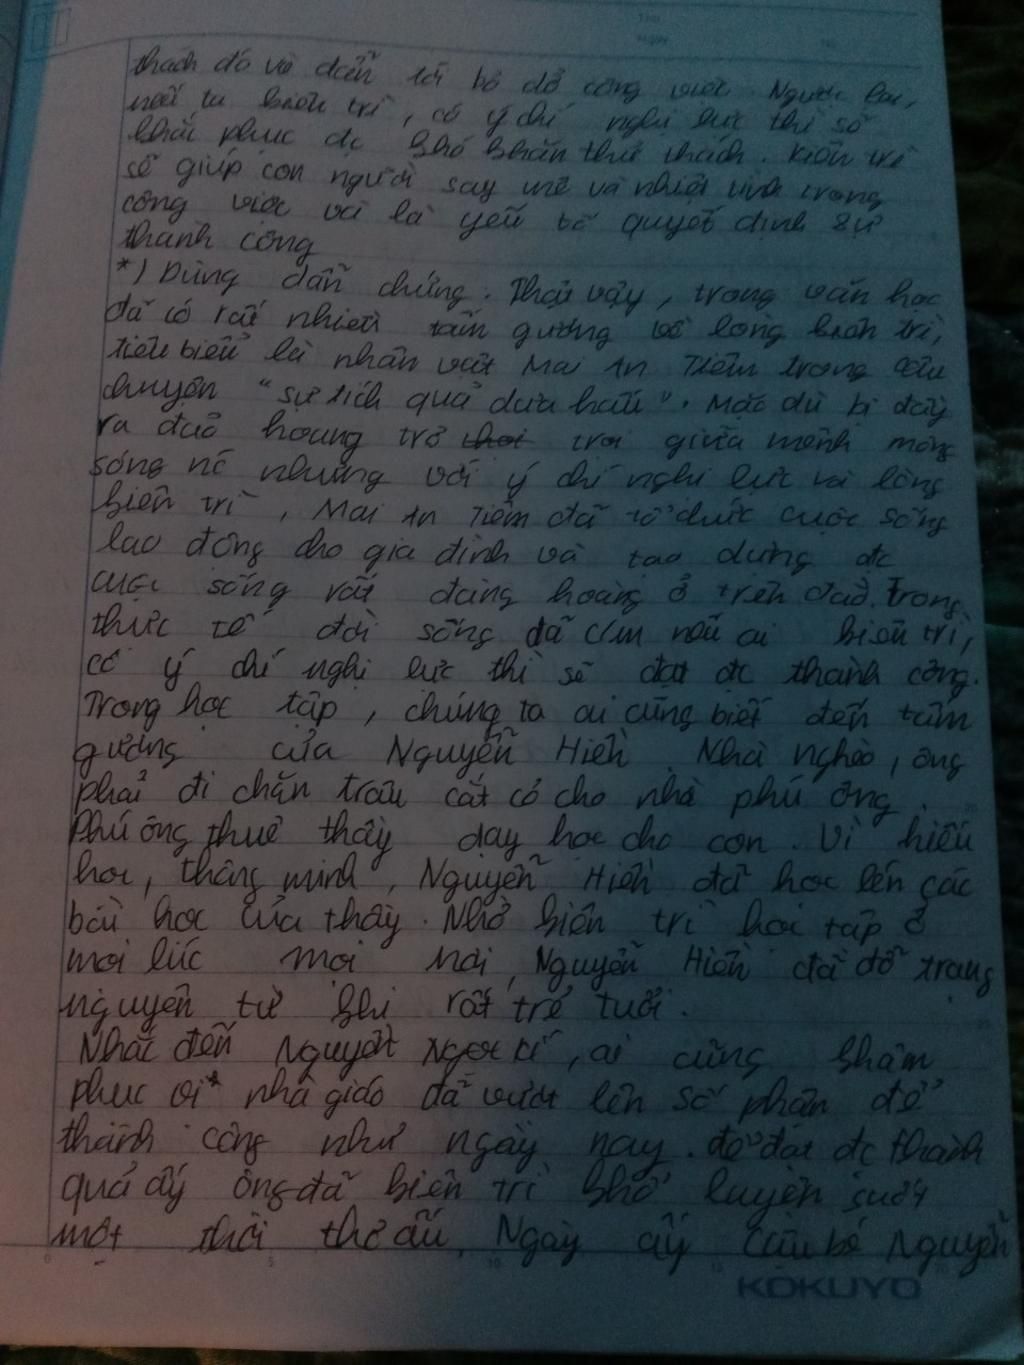 thách đó và dẫn tới bỏ dở công việc. Ngược lại,
nếu ta kiên trì, có ý chí nghị lực thì sẽ
khắc phục đc khó khăn thử thách. Kiên trì
sẽ giúp con người say mê và nhiệt tình trong
công việc và là yếu tố quyết định sự
thành công
*) Dùng dẫn chứng. Thật vậy, trong văn học
đã có rất nhiều tấm gương về lòng kiên trì,
tiêu biểu là nhân vật Mai An Tiêm trong câu
chuyện "sự tích quả dưa hấu". Mặc dù bị đày
ra đảo hoang trơ trọi giữa mênh mông
sóng nc nhưng với ý chí nghị lực và lòng
kiên trì, Mai An Tiêm đã tổ chức cuộc sống
lao động cho gia đình và tạo dựng đc
cuộc sống rất đàng hoàng ở trên đảo. Trong
thực tế đời sống đã cm nếu ai kiên trì,
có ý chí nghị lực thì sẽ đạt đc thành công.
Trong học tập, chúng ta ai cũng biết đến tấm
gương của Nguyễn Hiền. Nhà nghèo, ông
phải đi chăn trâu cắt cỏ cho nhà phú ông.
Phú ông thuê thầy dạy học cho con. Vì hiếu
học, thông minh, Nguyễn Hiền đã học lén các
bài học của thầy. Nhờ kiên trì học tập ở
mọi lúc mọi nơi, Nguyễn Hiền đã đỗ trạng
nguyên từ khi rất trẻ tuổi.
Nhắc đến Nguyễn Ngọc Kí, ai cũng khâm
phục vị nhà giáo đã vượt lên số phận để
thành công như ngày nay. để đạt đc thành
quả ấy ông đã kiên trì khổ luyện suốt
một thời thơ ấu. Ngày ấy cậu bé Nguyễn
KOKUYO